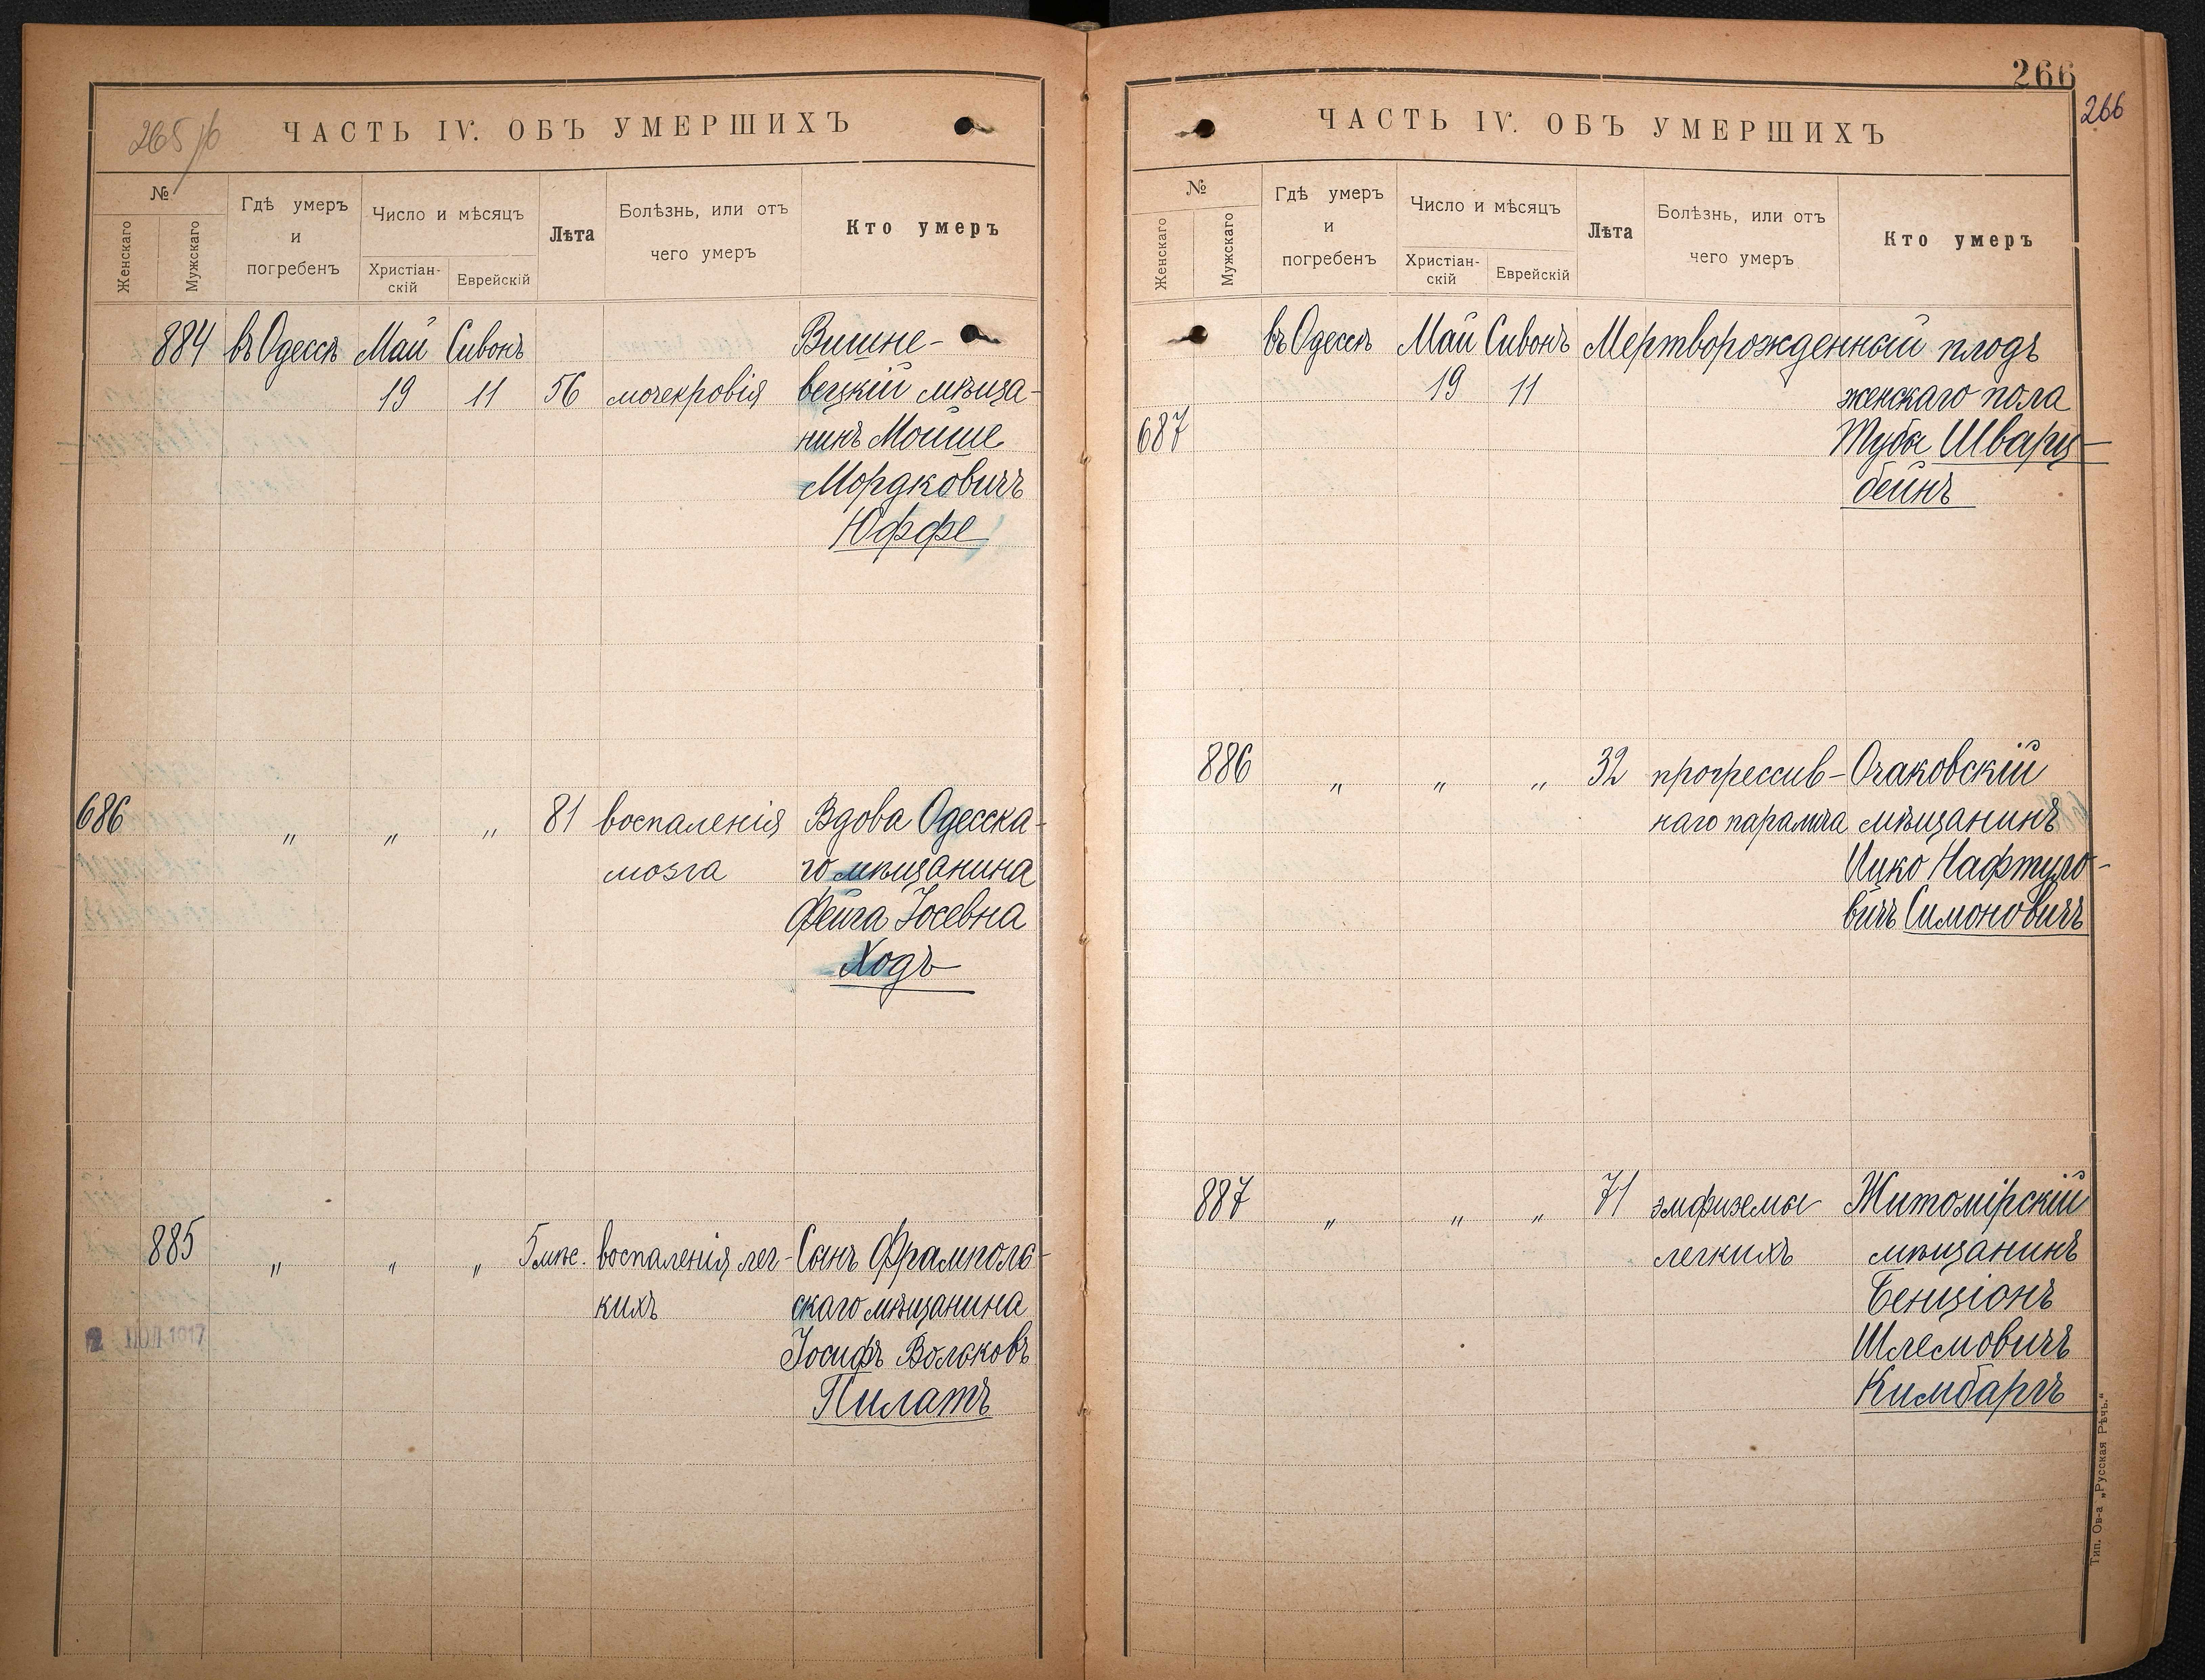 265 об
ЧАСТЬ IV. ОБЪ УМЕРШИХЪ
№
Женскаго
Мужскаго
Гдѣ умеръ
и
погребенъ
Число и мѣсяцъ
Христіан-
скій
Еврейскій
Лѣта
Болѣзнь, или отъ
чего умеръ
Кто умеръ
884 въ Одессѣ Май Сивонъ Вишне-
19 11 56 мочекровія вецкій мѣща-
нинъ Мойше
Мордковичъ
Юффе
686 " " " 81 воспаленія Вдова Одесска-
мозга го мѣщанина
Фейга Іосевна
Ходъ
885 " " " 5 мѣс. воспаленія лег- Сынъ Фрамполь-
кихъ скаго мѣщанина
Іосифъ Вольковъ
Пилатъ
2 1917
266
266
ЧАСТЬ IV. ОБЪ УМЕРШИХЪ
№
Женскаго
Мужскаго
Гдѣ умеръ
и
погребенъ
Число и мѣсяцъ
Христіан-
скій
Еврейскій
Лѣта
Болѣзнь, или отъ
чего умеръ
Кто умеръ
въ Одессѣ Май Сивонъ Мертворожденный плодъ
19 11 женскаго пола
687 Туба Шварц-
бейнъ
886 " " " 32 прогрессив- Очаковскій
наго паралича мѣщанинъ
Ицко Нафтуло-
вичъ Симоновичъ
887 " " " 71 эмфиземы Житомірскій
легкихъ мѣщанинъ
Бенціонъ
Шлемовичъ
Кимбаргъ
Тип. Ов-а „Русская Рѣчь."